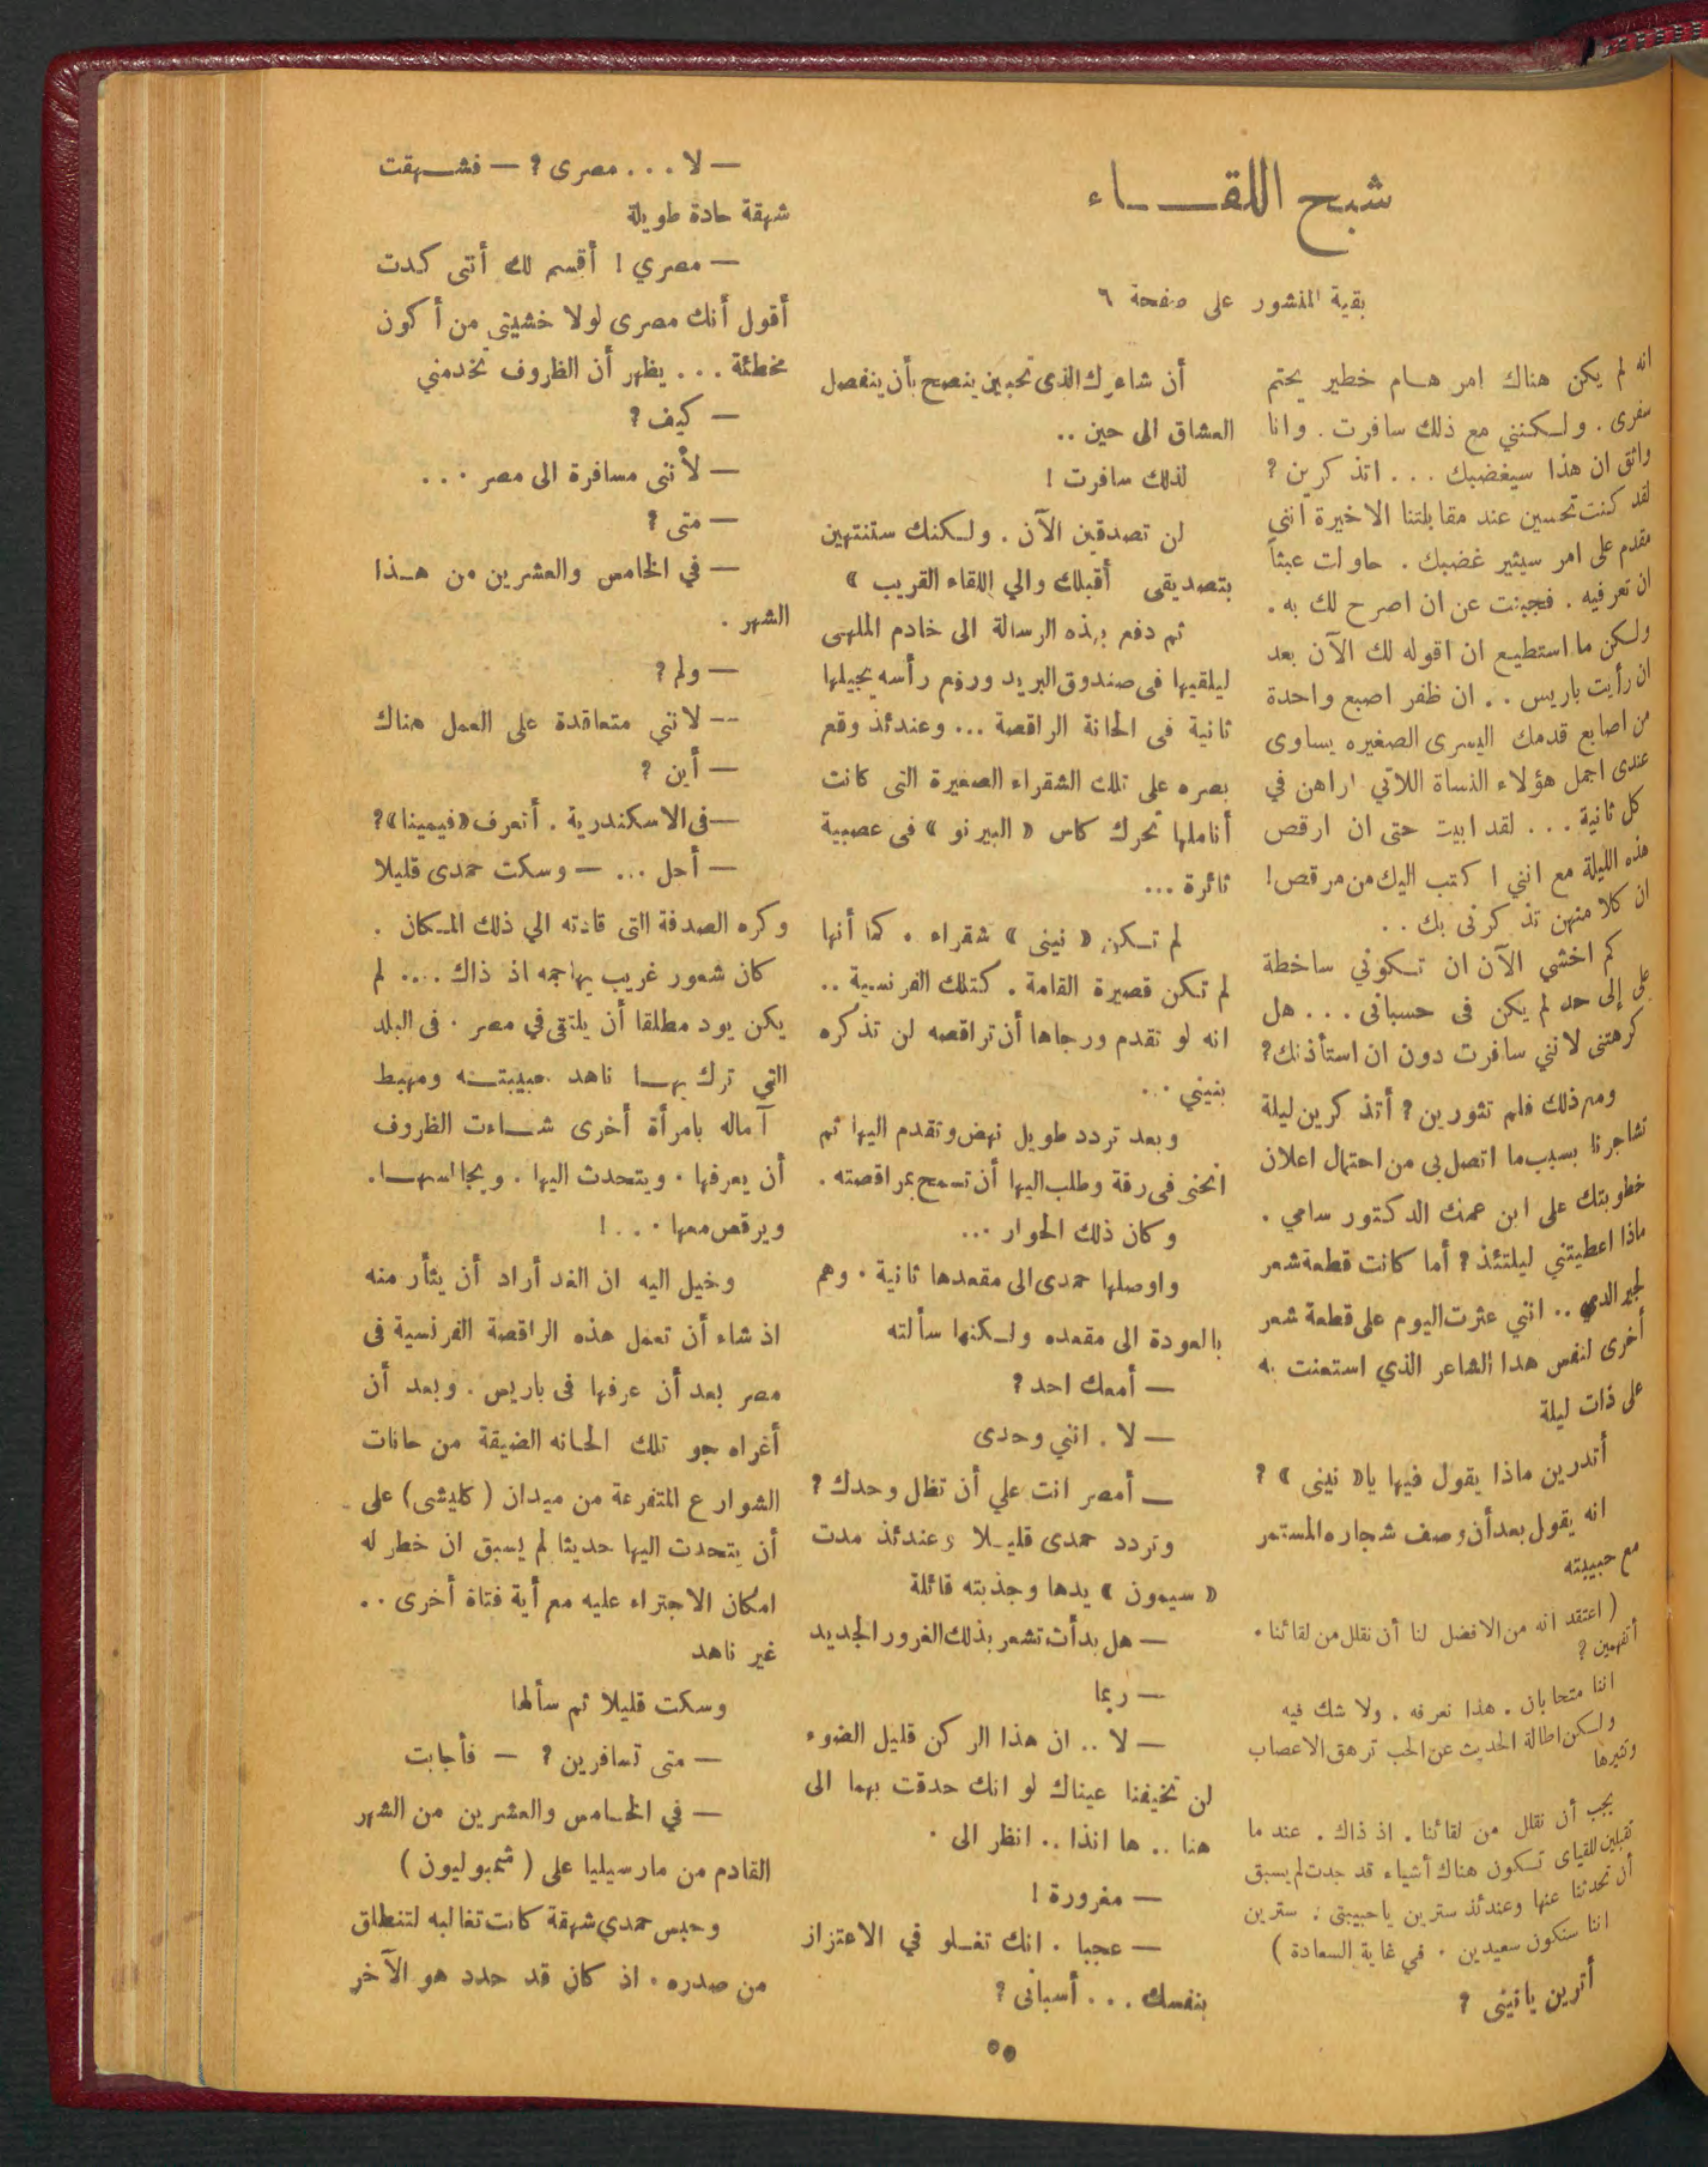 شبح اللقـــاء
بقية المنشور على صفحة ٦
انه لم يكن هناك امر هـام خطير يحتم
سفرى . ولـكنني مع ذلك سافرت . وانا
واثق ان هذا سيغضبك . . . اتذكرين ؟
لقد كنت تحسين عند مقابلتنا الاخيرة انني
مقدم على امر سيثير غضبك . حاولت عبثاً
ان تعرفيه . فجبنت عن ان اصرح لك به .
ولـكن ما استطيع ان اقوله لك الآن بعد
ان رأيت باريس . . ان ظفر اصبع واحدة
من اصابع قدمك اليسرى الصغيره يساوى
عندى اجمل هؤلاء النساة اللاتي اراهن في
كل ثانية . . . لقد ابيت حتى ان ارقص
هذه الليلة مع انني اكتب اليك من مرقص!
ان كلا منهن تذكرنى بك . .
كم اخشي الآن ان تـكوني ساخطة
على إلى حد لم يكن فى حسبانى . . . هل
كرهتنى لانني سافرت دون ان استأذنك؟
ومع ذلك فلم تثورين ? أتذكرين ليلة
تشاجرنا بسبب ما اتصل بى من احتمال اعلان
خطوبتك على ابن عمك الدكتور سامي .
ماذا اعطيتني ليلتئذ ؟ أما كانت قطعة شعر
لجيرالدي .. انني عثرت اليوم على قطعة شعر
أخرى لنفس هدا الشاعر الذي استعنت به
على ذات ليلة
أتدرين ماذا يقول فيها يا« نيني » ؟
انه يقول بعد أن وصف شجاره المستمر
مع حبيبته
( اعتقد انه من الافضل لنا أن نقلل من لقائنا .
أتفهمين ؟
اننا متحابان . هذا نعرفه . ولا شك فيه
ولـكن اطالة الحديث عن الحب ترهق الاعصاب
وتثيرها
يجب أن نقلل من لقائنا . اذ ذاك . عند ما
تقبلين للقياى تـكون هناك أشياء قد جدت لم يسبق
أن تحدثنا عنها وعندئذ سترين يا حبيبتى . سترين
اننا سنكون سعيدين . في غاية السعادة )
أترين يا نينى ؟
أن شاعرك الذى تحبين ينصح بأن ينفصل
العشاق الى حين ..
لذلك سافرت !
لن تصدقين الآن . ولـكنك ستنتهين
بتصديقى أقبلك والي اللقاء القريب »
ثم دفع بهذه الرسالة الى خادم الملهى
ليلقيها فى صندوق البريد ورفع رأسه يجيلها
ثانية فى الحانة الراقصة ... وعندئذ وقع
بصره على تلك الشقراء الصغيرة التى كانت
أناملها تحرك كاس « البيرنو » فى عصبية
ثائرة ...
لم تـكن « نينى » شقراء . كما أنها
لم تكن قصيرة القامة . كتلك الفرنسية ..
انه لو تقدم ورجاها أن تراقصه لن تذكره
بنيني . .
وبعد تردد طويل نهض وتقدم اليها ثم
انحنى فى رقة وطلب اليها أن تسمح بمراقصته .
وكان ذلك الحوار ...
واوصلها حمدى الى مقعدها ثانية . وهم
بالعودة الى مقعده ولـكنها سألته
— أمعك احد ؟
— لا . انني وحدى
— أمصر انت علي أن تظل وحدك ؟
وتردد حمدى قليـلا وعندئذ مدت
« سيمون » يدها وجذبته قائلة
— هل بدأت تشعر بذلك الغرور الجديد
— ربما
— لا .. ان هذا الركن قليل الضوء
لن تخيفنا عيناك لو انك حدقت بهما الى
هنا .. ها انذا .. انظر الى .
— مغرورة !
— عجبا . انك تغـلو في الاعتزاز
بنفسك . . . أسبانى ؟
— لا . . . مصرى ؟ — فشـهقت
شهقة حادة طويلة
— مصري ! أقسم لك أنني كدت
أقول أنك مصرى لولا خشيتى من أكون
مخطئة . . . يظهر أن الظروف تخدمني
— كيف ؟
— لأننى مسافرة الى مصر . . .
— متى ؟
— في الخامس والعشرين من هـذا
الشهر .
— ولم ؟
— لانني متعاقدة على العمل هناك
— أين ؟
— فى الاسكندرية . أتعرف «فيمينا»؟
— أجل ... — وسكت حمدى قليلا
وكره الصدفة التى قادته الي ذلك المـكان .
كان شعور غريب يهاجمه اذ ذاك .... لم
يكن يود مطلقا أن يلتقى في مصر . فى البلد
التي ترك بهـا ناهد حبيبتـه ومهبط
آماله بامرأة أخرى شـاءت الظروف
أن يعرفها . ويتحدث اليها . ويجالسهـا.
ويرقص معها . . . !
وخيل اليه ان الغد أراد أن يثأر منه
اذ شاء أن تعمل هذه الراقصة الفرنسية فى
مصر بعد أن عرفها فى باريس . وبعد أن
أغراه جو تلك الحانه الضيقة من حانات
الشوارع المتفرعة من ميدان ( كليشى ) على
أن يتحدث اليها حديثا لم يسبق ان خطر له
امكان الاجتراء عليه مع أية فتاة أخرى . .
غير ناهد
وسكت قليلا ثم سألها
— متى تسافرين ؟ — فأجابت
— في الخـامس والعشرين من الشهر
القادم من مارسيليا على ( شمبوليون )
وحبس حمدي شهقة كانت تغالبه لتنطلق
من صدره . اذ كان قد حدد هو الآخر
٥٥